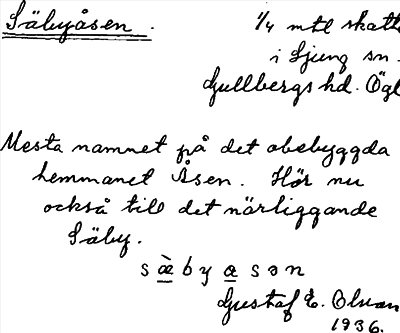 Säbyåsen. 1/4 mtl skatte
i Ljung sn.
Gullbergs hd. Ögl
Mesta namnet på det obebyggda
hemmanet Åsen. Hör nu
också till det närliggande
Säby.
sæ̀byasən
Gustaf E. Olsson
1936.